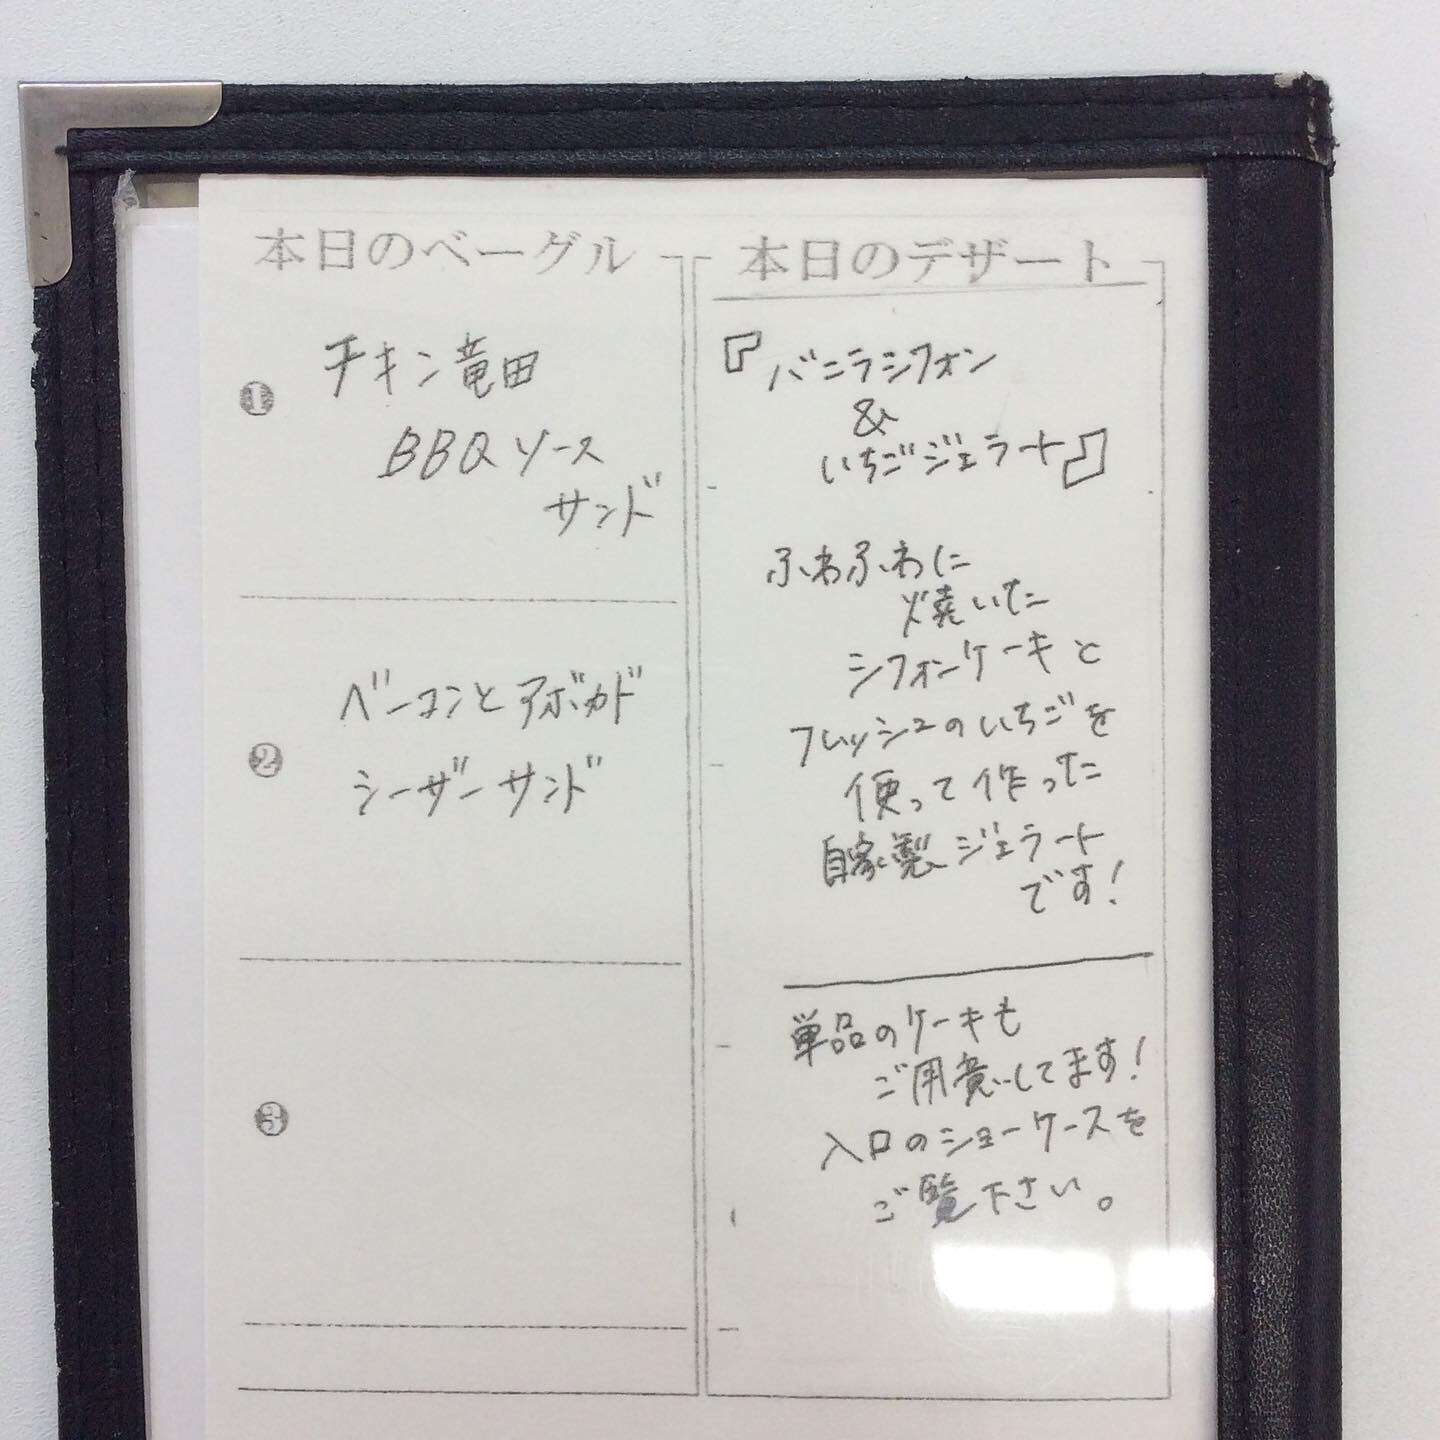 本日のベーグル
❶
チキン竜田
BBQソース
サンド
❷
ベーコンとアボカド
シーザーサンド
❸
本日のデザート
『バニラシフォン
&
いちごジェラート』
ふわふわに
焼いた
シフォンケーキと
フレッシュのいちごを
使って作った
自家製ジェラート
です!
単品のケーキも
ご用意してます!
入口のショーケースを
ご覧下さい。